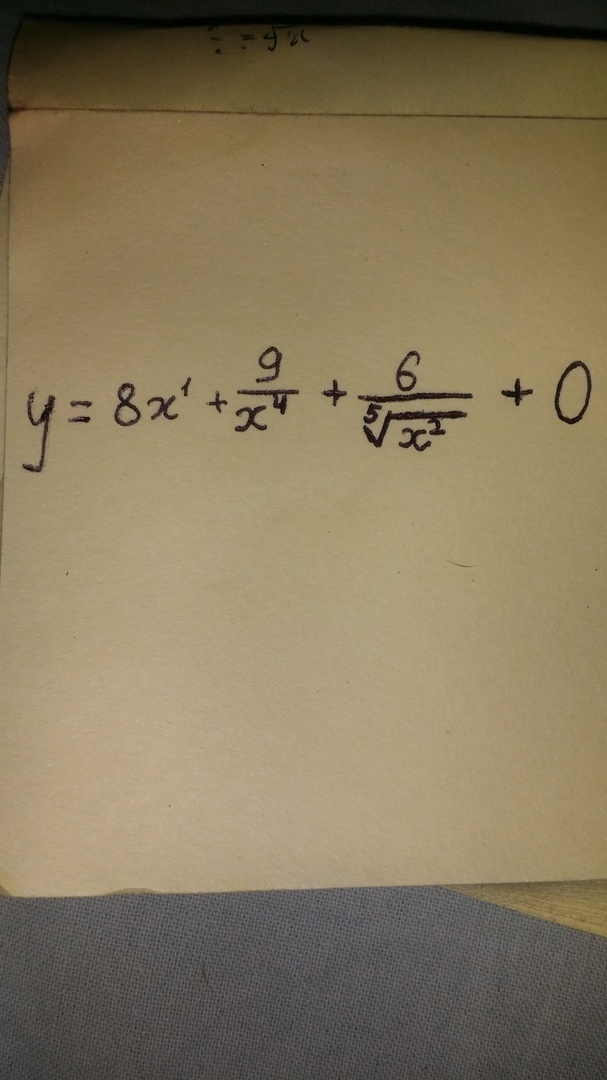 y = 8x¹ + 9/x⁴ + 6/⁵√x² + 0